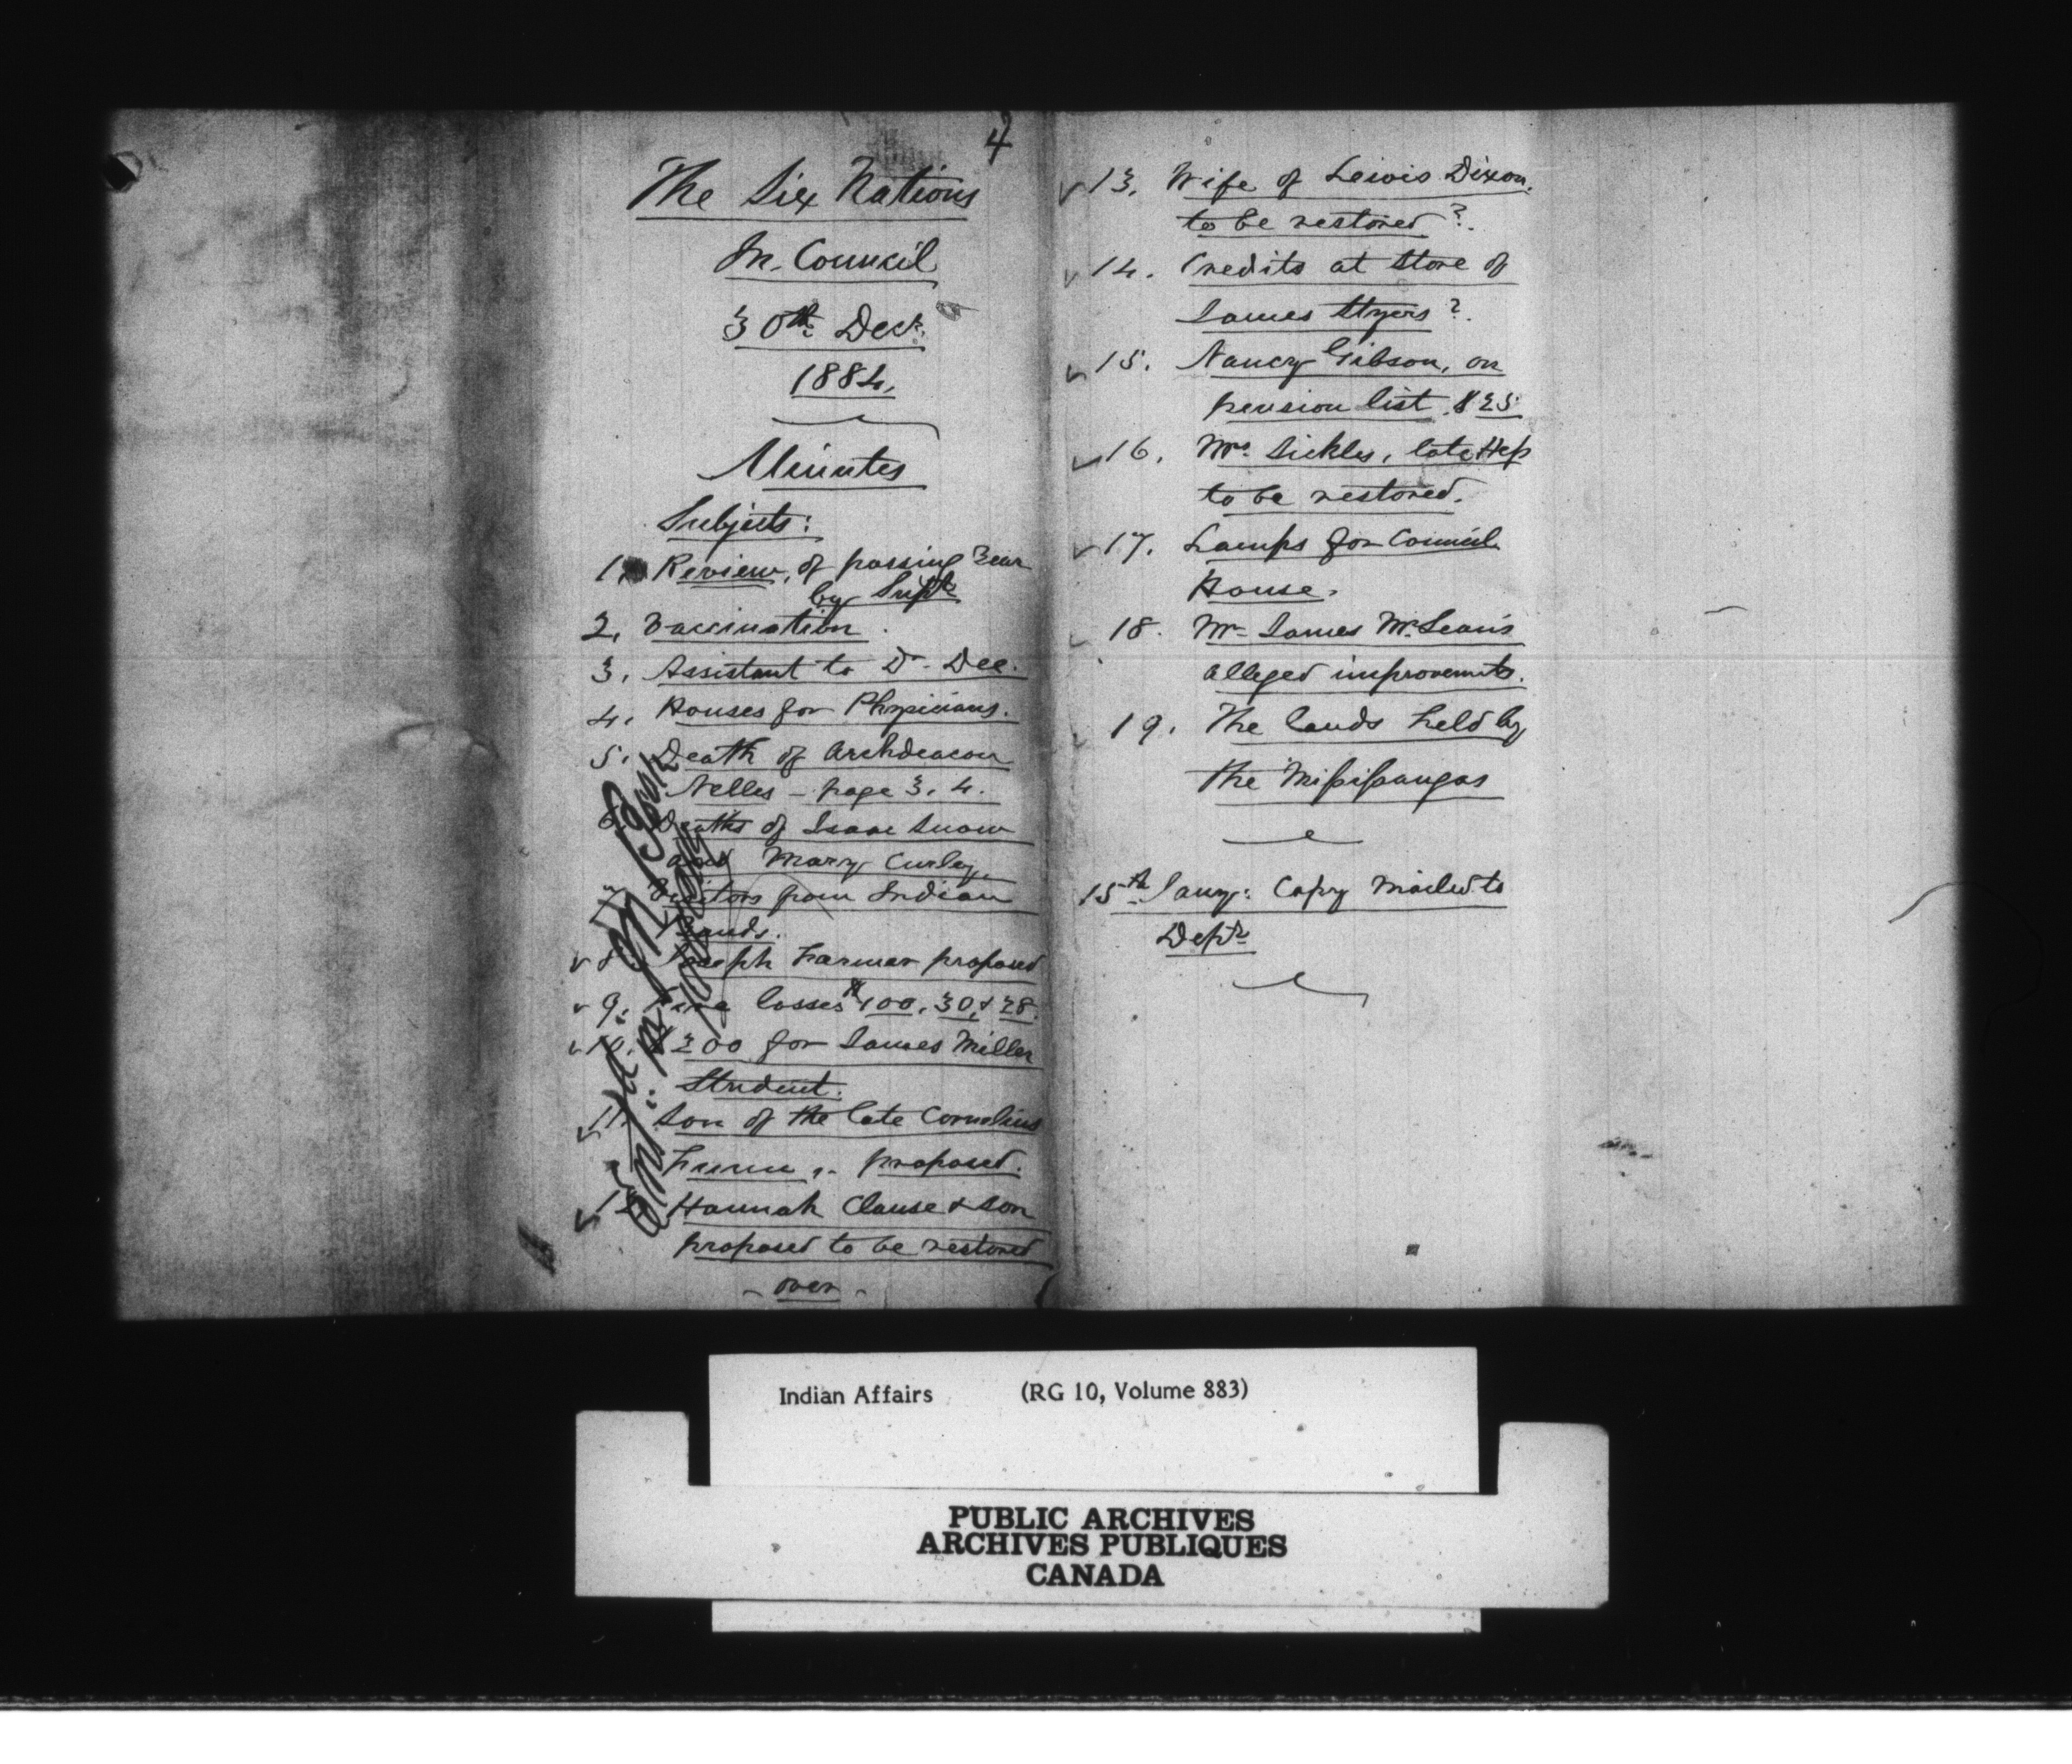 4
The Six Nations
In Council
30th Decr.
1884.
Minutes
Subjects:
1. Review, of passing Year
by Supt.
2, Vaccination.
3, Assistant to Dr. Dee.
4. Houses for Physicians.
5. Death of Archdeacon
Nelles - page 3. 4.
6. Deaths of Isaac Snow
and Mary Curley.
7 Visitors from Indian
Bands.
8. Joseph Farmer proposed
9. Fire losses $100, 30, & 28.
10. $200 for James Miller
Student.
11. Son of the late Cornelius
proposed.
12. Hannah Clause & son
proposed to be restored
- over -
in M Book
13. Wife of Lewis Dixon.
to be restored?.
14. Credits at Store of
James Styers?.
15. Nancy Gibson, on
pension list, $25
16. Mrs. Sickles, late Hep
to be restored.
17. Lamps for Council
House.
18. Mr. James McLean's
alleged improvemts.
19. The lands held by
the Missisaugas
15th Jany: Copy mailed to
Dept.
Indian Affairs (RG 10, Volume 883)
PUBLIC ARCHIVES
ARCHIVES PUBLIQUES
CANADA